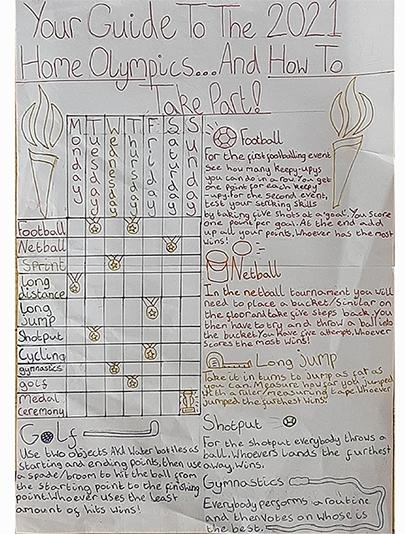 Your Guide To The 2021
Home Olympics...And How To
Take Part!
Monday
Tuesday
Wednesday
Thursday
Friday
Saturday
Sunday
Football
Netball
Sprint
Long
distance
Long
Jump
Shotput
Cycling
gymnastics
golf
Medal
ceremony
Football
For the first footballing event
see how many keepy-upys
you can do in a row. You get
one point for each keepy
-up. For the second event,
test your striking skills
by taking five shots at a goal. You score
one point per goal. At the end add
up all your points. Whoever has the most
wins!
Netball
In the netball tournament you will
need to place a bucket/similar on
the floor and take five steps back. You
then have to try and throw a ball into
the bucket. You have five attempts. Whoever
scores the most wins!
Long jump
Take it in turns to jump as far as
you can. Measure how far you jumped
with a ruler/measuring tape. Whoever
jumped the furthest wins.
Shotput
For the shotput everybody throws a
ball. Whoever lands the furthest
away, wins.
Gymnastics
Everybody performs a routine
and then votes on whose is
the best.
Golf
Use two objects AKA water bottles as
starting and ending points, then use
a spade/broom to hit the ball from
the starting point to the finishing
point. Whoever uses the least
amount of hits wins!